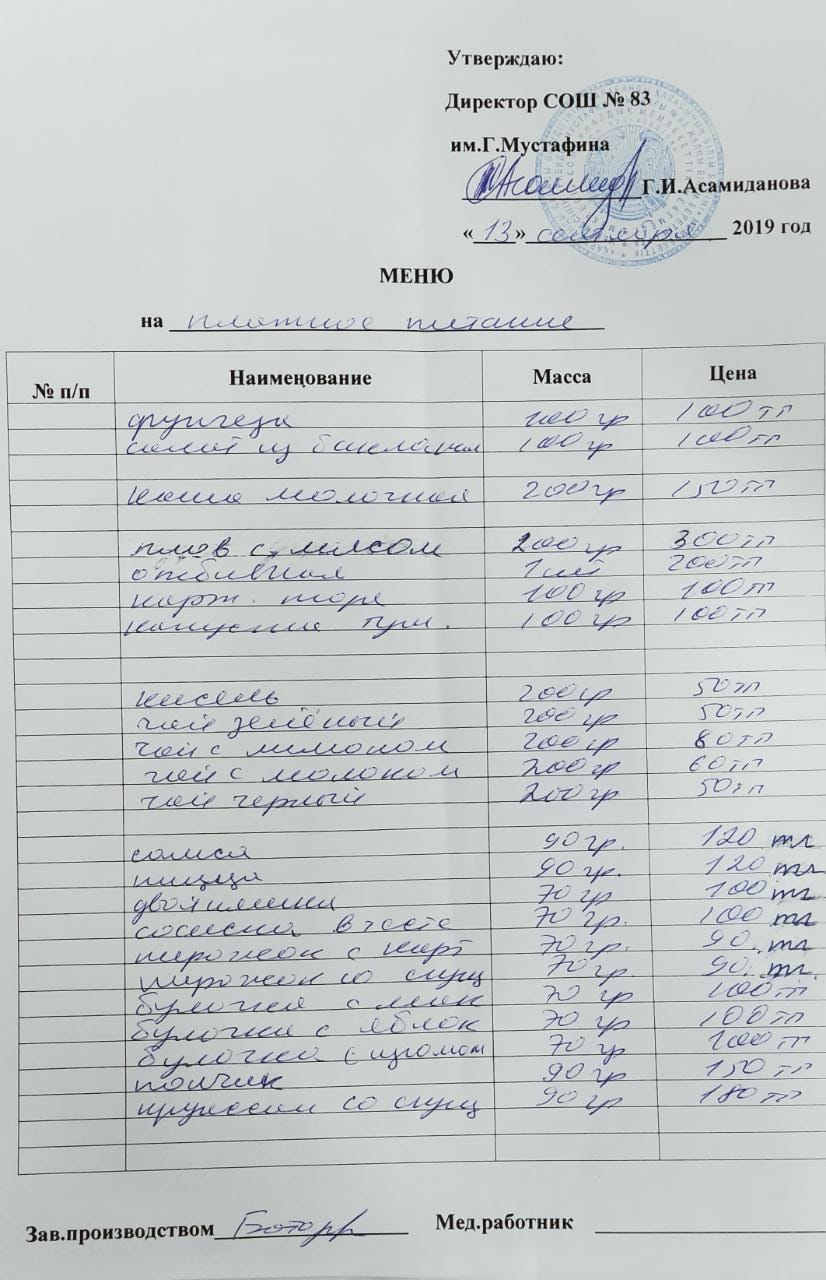 Утверждаю:
Директор СОШ № 83
им.Г.Мустафина
Г.И.Асамиданова
«13» сентября 2019 год
МЕНЮ
на платное питание
№ п/п Наименование Масса Цена
фунчеза 100 гр 100 тг
салат из баклажан 100 гр 100 тг
каша молочная 200 гр 150 тг
плов с мясом 200 гр 300 тг
отбивная 1 шт 200 тг
карт. пюре 100 гр 100 тг
капуста туш. 100 гр 100 тг
кисель 200 гр 50 тг
чай зелёный 200 гр 50 тг
чай с лимоном 200 гр 80 тг
чай с молоком 200 гр 60 тг
чай черный 200 гр 50 тг
самса 90 гр. 120 тг
пицца 90 гр. 120 тг
двойняшки 70 гр 100 тг
сосиска в тесте 70 гр. 100 тг
пирожок с карт 70 гр. 90. тг
пирожок со сгущ 70 гр. 90. тг.
булочка с мак 70 гр 100 тг
булочка с яблок 70 гр 100 тг
булочка с изюмом 70 гр 100 тг
пончик 90 гр 150 тг
круассан со сгущ 90 гр 180 тг
Зав.производством Мед.работник